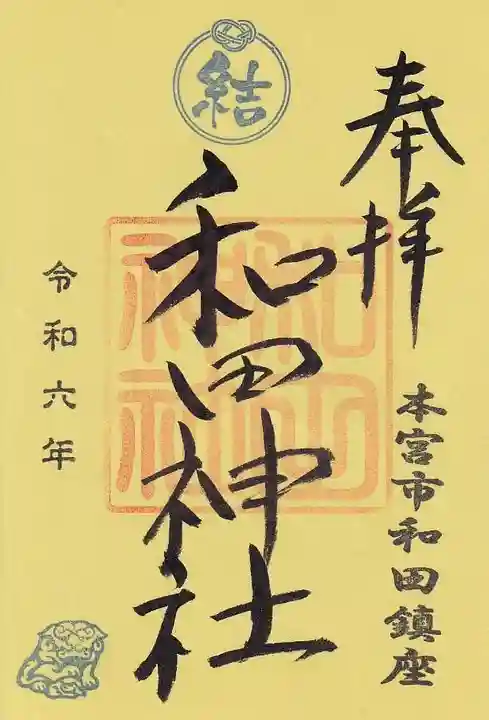 奉拝
本宮市和田鎮座
結
和田神社
和田神社
令和六年